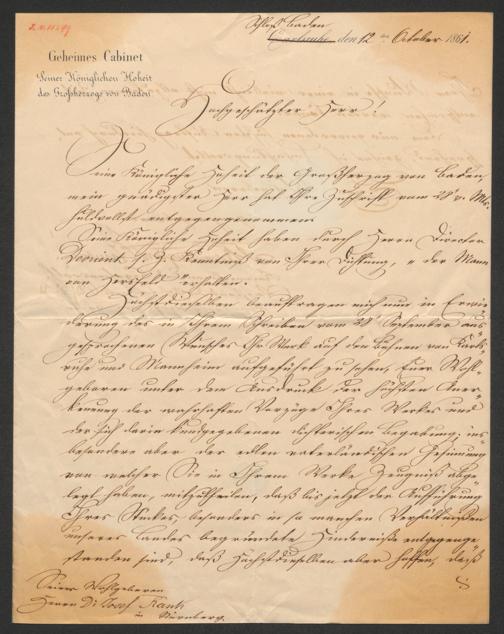 Schloß Baden
Carlsruhe den 12ten October 1861.
Geheimes Cabinet
Seiner Königlichen Hoheit
des Großherzogs von Baden
Hochgeschätzter Herr!
Seine Königliche Hoheit der Großherzog von Baden,
mein gnädigster Herr hat Ihre Zuschrift vom 28t v. Mts.
huldvollst entgegengenommen.
Seine Königliche Hoheit haben durch Herrn Director
Devrient s. Z. Kenntniß von Ihrer Dichtung, "der Mann
von Hersfeld" erhalten.
Höchstdieselben beauftragen mich nun in Erwie
derung des in Ihrem Schreiben vom 28t September aus
gesprochenen Wunsches Ihr Werk auf den Bühnen von Karls
ruhe und Mannheim aufgeführt zu sehen, Euer Wohl
geboren unter dem Ausdruck der höchsten Aner
kennung der wahrhaften Vorzüge Ihres Werkes und
der sich darin kundgegebenen dichterischen Begabung, ins
besondere aber der edlen vaterländischen Gesinnung
von welcher Sie in Ihrem Werke Zeugniß abge
legt haben, mitzutheilen, daß bis jetzt der Aufführung
Ihres Stückes, besonders in so manchen Verhältnißen
unseres Landes begründete Hindernisse entgegenge
standen sind, daß Höchstdieselben aber hoffen, daß
Seiner Wohlgeboren
Herrn Dr Josef Rank
in Nürnberg.